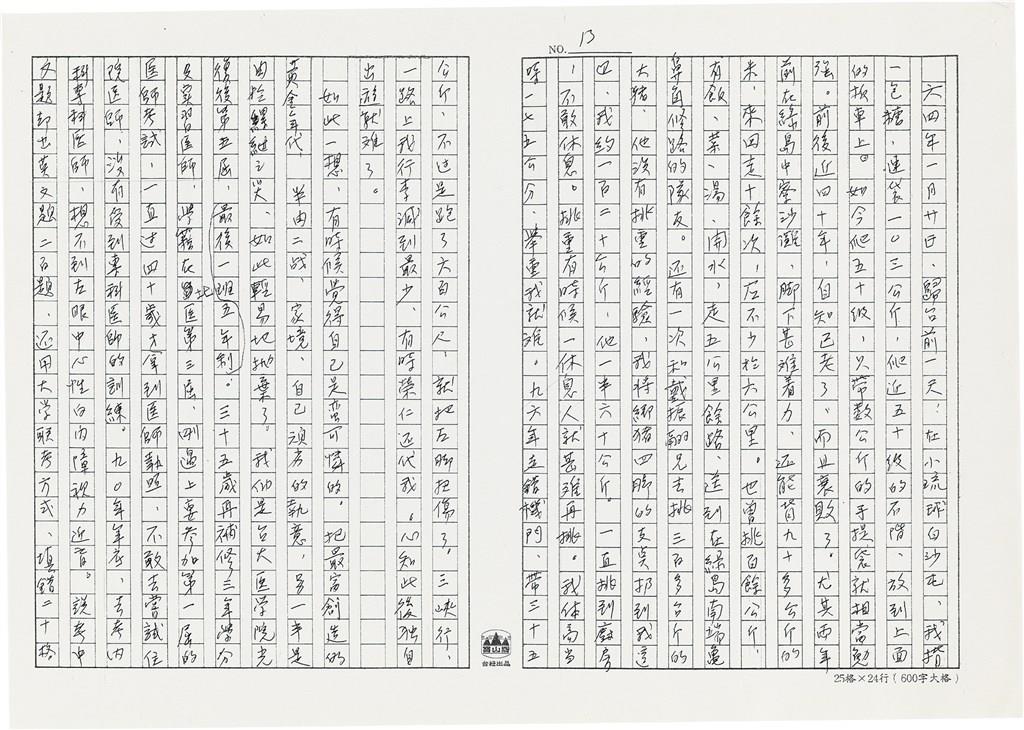 NO. 13
六四年一月廿日、歸台前一天、在小琉球白沙屯、我揹
一包糖、連袋一〇三公斤、爬近五十級的石階、放到上面
的板車上。如今爬五十級、只帶數公斤的手提袋就相當勉
強。前後近四十年、自知已老了、而且衰敗了。尤其兩年
前在綠島中寮沙灘、腳下甚難着力、還能背九十多公斤的
米、來回走十餘次、左不少於六公里。也曾挑百餘公斤、
有飯、菜、湯、開水、走五公里餘路、送到在綠島南端龜
鼻角修路的隊友。還有一次和戴振翮兄去挑三百多台斤的
大豬、他沒有挑重的經驗、我將綁豬四腳的支點挪到我這
四、我約一百二十公斤、他一半六十公斤。一直挑到廚房
、不敢休息。挑重有時候一休息人就甚難再挑。我体高當
時一七五公分、舉重我就难。九六年立錯機門、帶三十五
公斤、不过是跑了六百公尺、就把左脚扭傷了。三峽行、
一路上我行李減到最少、有時榮仁还代我。心知此後独自
出遊就难了。
如此一想、有時候覺得自己是蛮可憐的。把最富創造的
黃金年代、半由二战、家境、自己頑劣的執意、另一半是
由於縲絏之災、如此輕易地抛棄了。我们是台大医学院光
復後第五屆、最後一班五年制。三十五歲再補修三年學分
及實習医师、學籍在北医第三屆、刚遇上要参加第一屆的
医师考試、一直过四十歲才拿到医师執照、不敢去嘗試住
院医师、没有受到專科医师的訓練。九〇年年底、去考内
科專科医师、想不到左眼中心性白内障视力近盲。説考中
文題却也英文題二百題、还用大学联考方式、填錯二十格
台紙出品
25格×24行(600字大格)